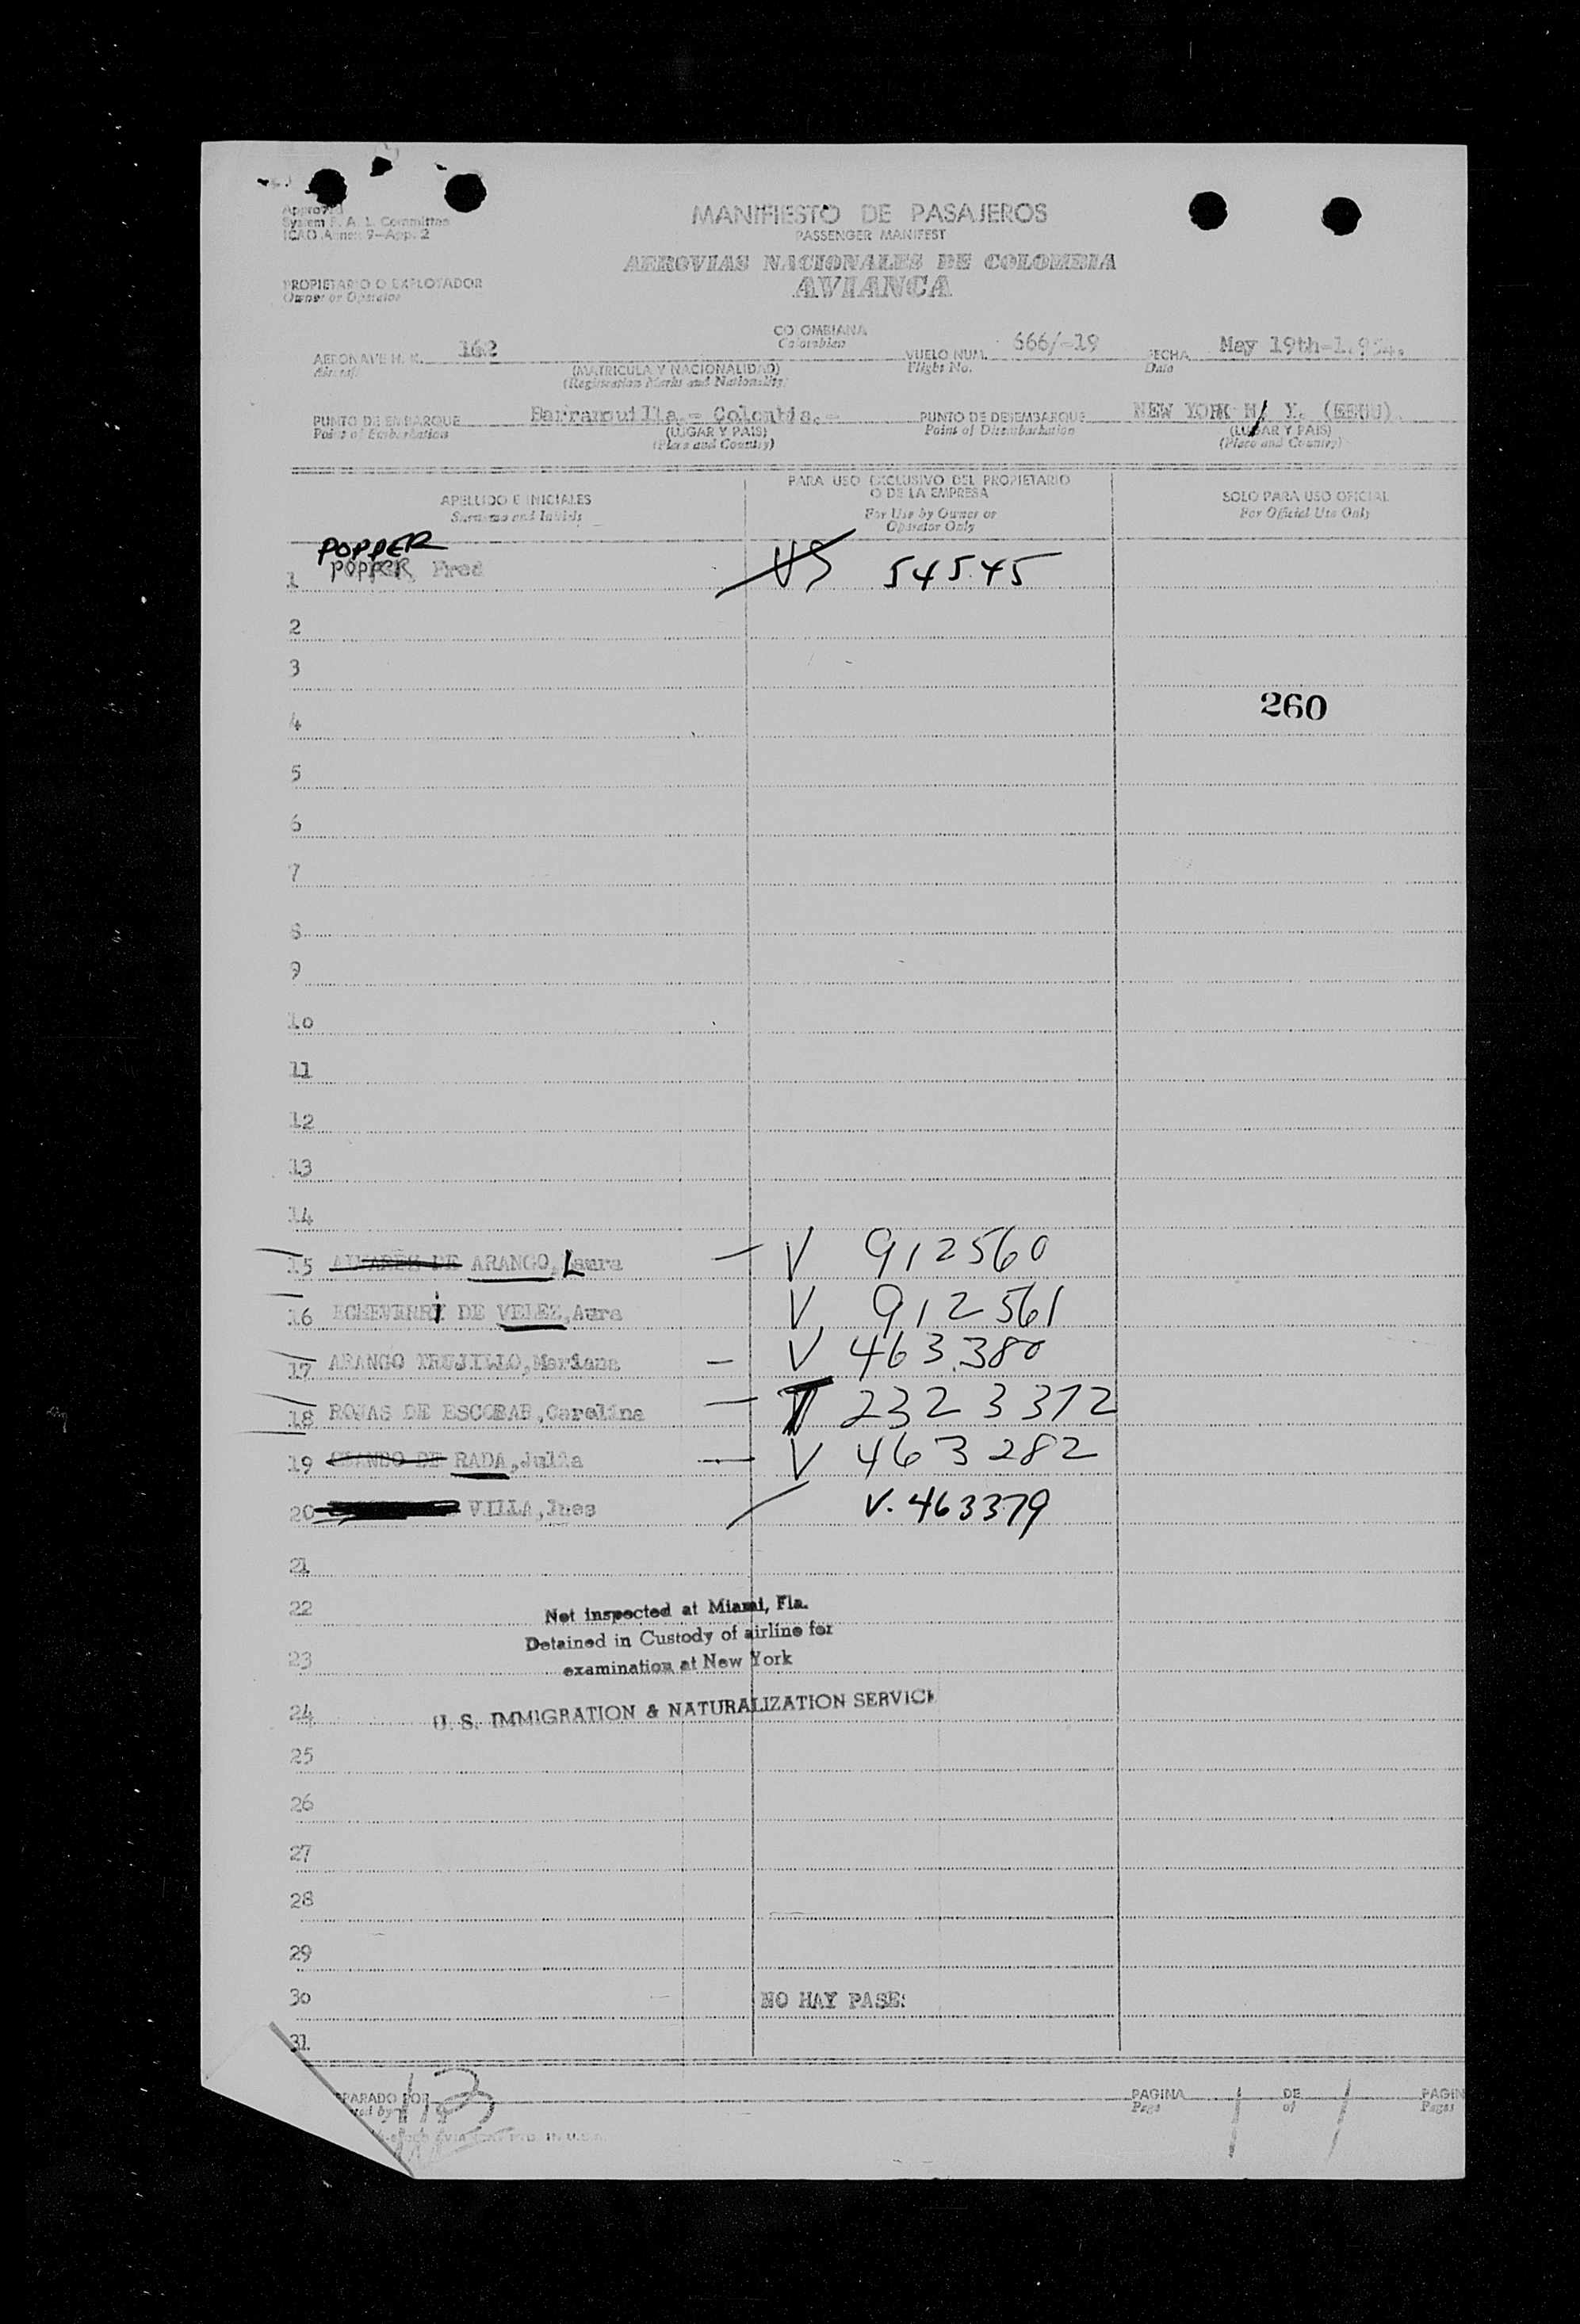 Approved
System F. A. L. Committee
ICAO Annex 9-App. 2
MANIFIESTO DE PASAJEROS
PASSENGER MANIFEST
AEROVIAS NACIONALES DE COLOMBIA
AVIANCA
PROPIETARIO O EXPLOTADOR
Owner or Operator
COLOMBIANA
Colombian
AERONAVE H. K. 162
Aircraft
(MATRICULA Y NACIONALIDAD)
(Registration Marks and Nationality)
VUELO NUM. 666/-19
Flight No.
FECHA May 19th-1.954.
Date
PUNTO DE EMBARQUE Barranquilla.- Colombia.-
Point of Embarkation
(LUGAR Y PAIS)
(Place and Country)
PUNTO DE DESEMBARQUE NEW YORK N/ Y. (EEUU).
Point of Disembarkation
(LUGAR Y PAIS)
(Place and Country)
APELLIDO E INICIALES
Surname and Initials
PARA USO EXCLUSIVO DEL PROPIETARIO
O DE LA EMPRESA
For Use by Owner or
Operator Only
SOLO PARA USO OFICIAL
For Official Use Only
POPPER
1 POPPER, Fred US 54545
2
3
260
4
5
6
7
8
9
10
11
12
13
14
15 ALVARES DE ARANGO, Laura V 912560
16 ECHEVERRI DE VELEZ, Aura V 912561
17 ARANGO TRUJILLO, Mariana V 463380
18 ROJAS DE ESCOBAR, Carolina T 2323372
19 DE RADA, Julia V 463282
20 VILLA, Ines V. 463379
21
22 Not inspected at Miami, Fla.
Detained in Custody of airline for
23 examination at New York
24 U. S. IMMIGRATION & NATURALIZATION SERVICE
25
26
27
28
29
30 NO HAY PASE:
31
PARADO POR
PAGINA 1 DE 1 PAGIN
Page of Pages